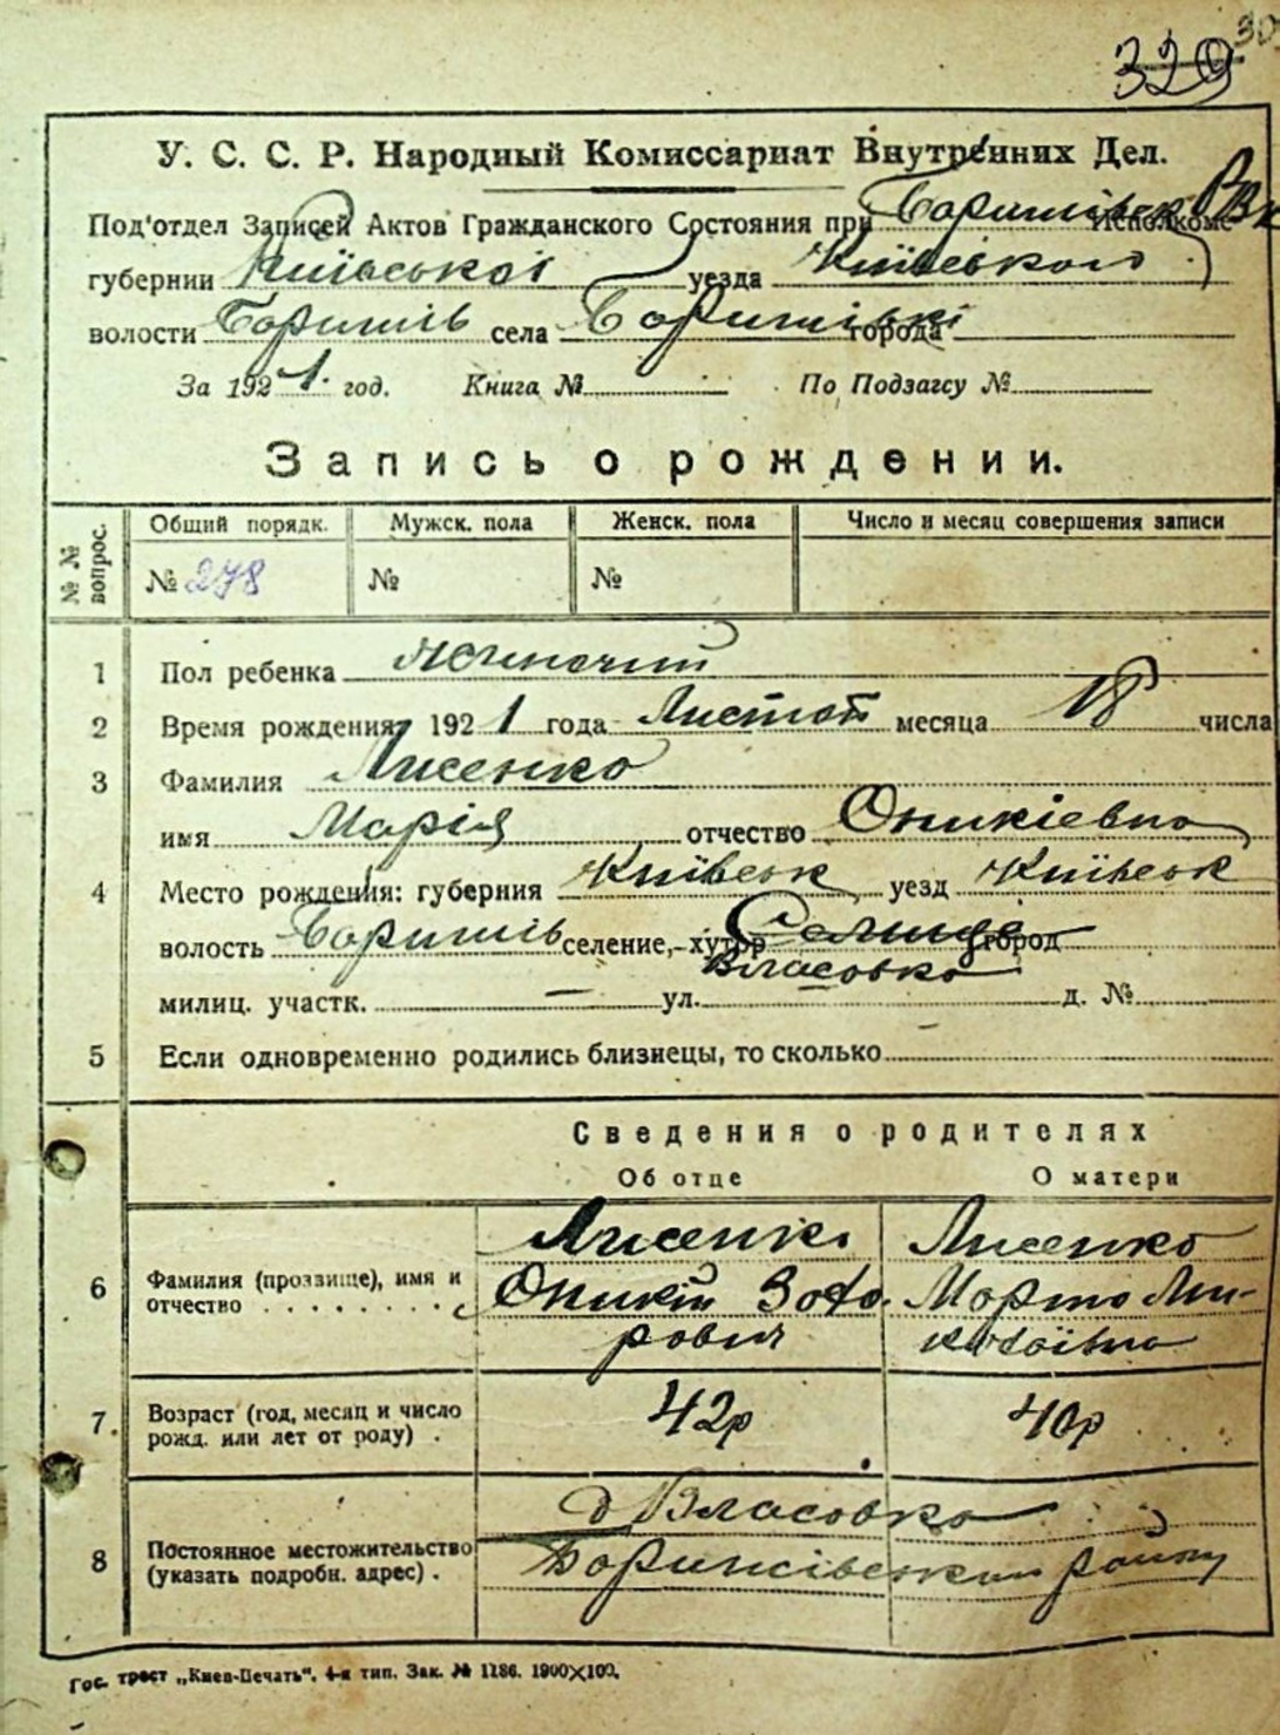 329
У. С. С. Р. Народный Комиссариат Внутренних Дел.
Под'отдел Записей Актов Гражданского Состояния при Исполкоме
губернии Київської уезда Київського
волости Баришів села Баришівкі города
За 1921. год. Книга № По Подзагсу №
Запись о рождении.
№ № вопрос. Общий порядк. Мужск. пола Женск. пола Число и месяц совершения записи
№ 278 № №
1 Пол ребенка жиночий
2 Время рождения 1921 года Листоп месяца 18 числа
3 Фамилия Лисенко
имя Марія отчество Оникієвна
4 Место рождения: губерния Київськ уезд Київськ
волость Баришів селение, хутор Селище город
Власовка
милиц. участк. — ул. — д. №
5 Если одновременно родились близнецы, то сколько —
Сведения о родителях
Об отце О матери
6 Фамилия (прозвище), имя и отчество Лисенко Лисенко
Оникій Заха- Марта Ми-
рович колаївна
7. Возраст (год, месяц и число рожд. или лет от роду) . 42р 40р
8 Постоянное местожительство (указать подробн. адрес) . д Власовка
Баришівськаи району
Гос. трест „Киев-Печать“. 4-я тип. Зак. № 1186. 1900×100.